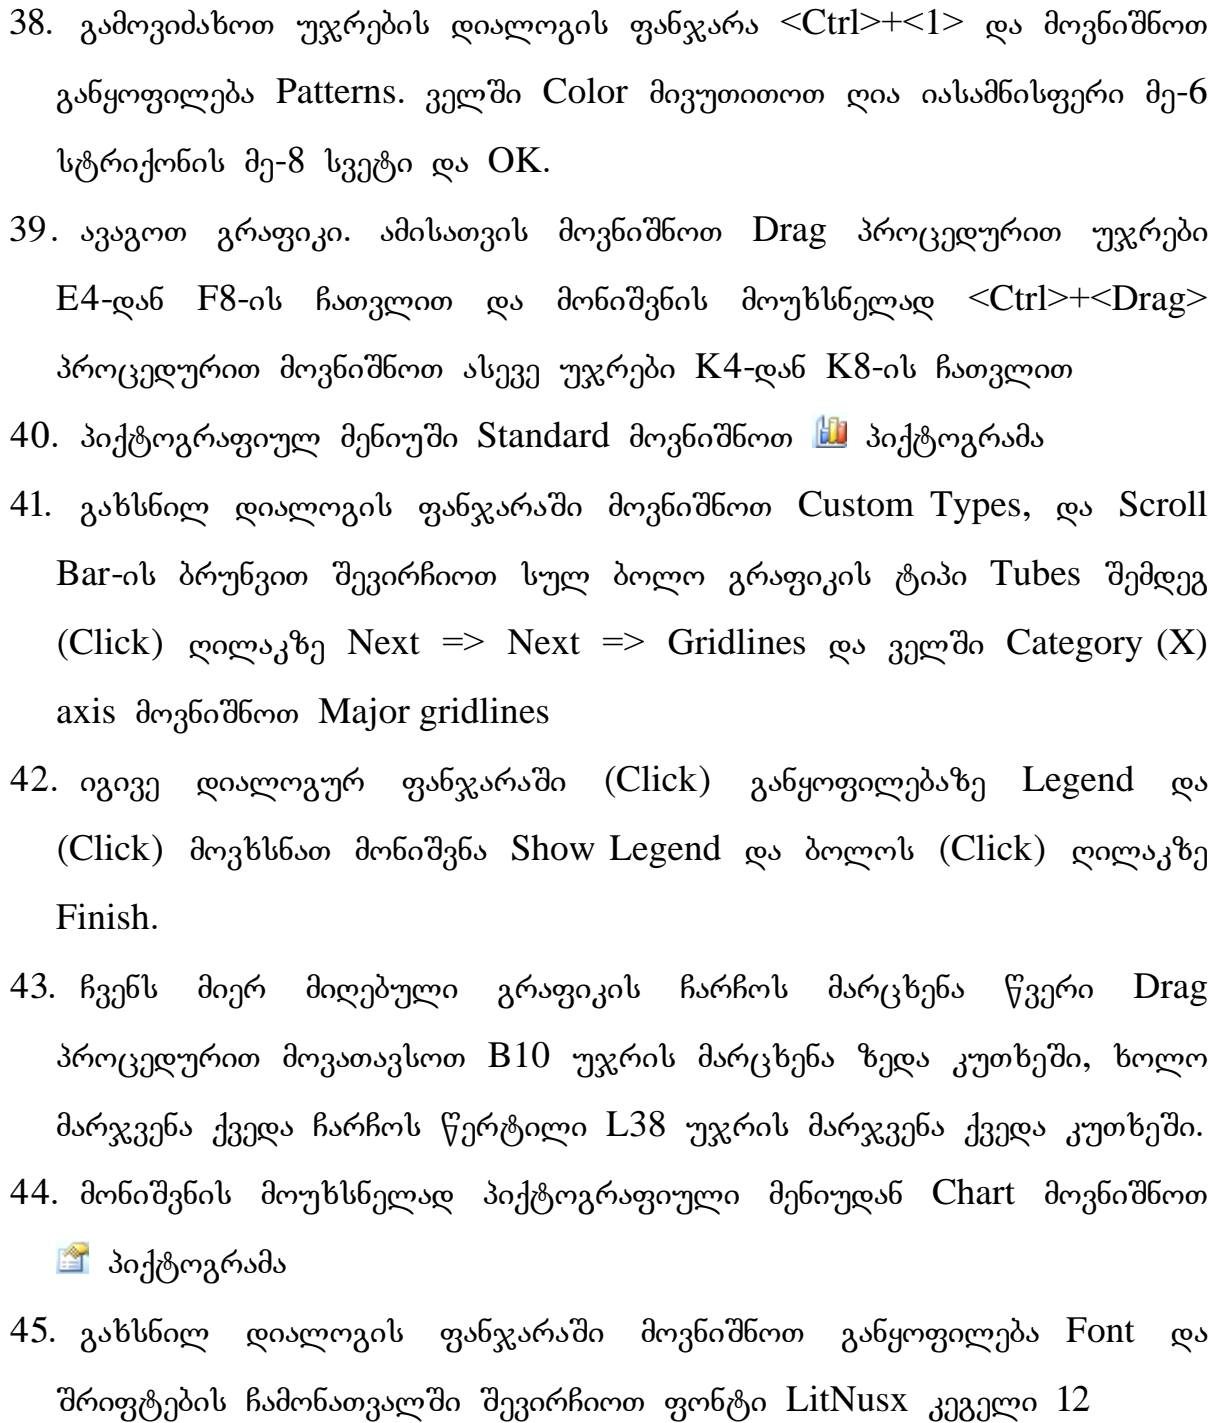 38. გამოვიძახოთ უჯრების დიალოგის ფანჯარა <Ctrl>+<1> და მოვნიშნოთ
განყოფილება Patterns. ველში Color მივუთითოთ ღია იასამნისფერი მე-6
სტრიქონის მე-8 სვეტი და OK.
39. ავაგოთ გრაფიკი. ამისათვის მოვნიშნოთ Drag პროცედურით უჯრები
E4-დან F8-ის ჩათვლით და მონიშვნის მოუხსნელად <Ctrl>+<Drag>
პროცედურით მოვნიშნოთ ასევე უჯრები K4-დან K8-ის ჩათვლით
40. პიქტოგრაფიულ მენიუში Standard მოვნიშნოთ პიქტოგრამა
41. გახსნილ დიალოგის ფანჯარაში მოვნიშნოთ Custom Types, და Scroll
Bar-ის ბრუნვით შევირჩიოთ სულ ბოლო გრაფიკის ტიპი Tubes შემდეგ
(Click) ღილაკზე Next => Next => Gridlines და ველში Category (X)
axis მოვნიშნოთ Major gridlines
42. იგივე დიალოგურ ფანჯარაში (Click) განყოფილებაზე Legend და
(Click) მოვხსნათ მონიშვნა Show Legend და ბოლოს (Click) ღილაკზე
Finish.
43. ჩვენს მიერ მიღებული გრაფიკის ჩარჩოს მარცხენა წვერი Drag
პროცედურით მოვათავსოთ B10 უჯრის მარცხენა ზედა კუთხეში, ხოლო
მარჯვენა ქვედა ჩარჩოს წერტილი L38 უჯრის მარჯვენა ქვედა კუთხეში.
44. მონიშვნის მოუხსნელად პიქტოგრაფიული მენიუდან Chart მოვნიშნოთ
პიქტოგრამა
45. გახსნილ დიალოგის ფანჯარაში მოვნიშნოთ განყოფილება Font და
შრიფტების ჩამონათვალში შევირჩიოთ ფონტი LitNusx კეგელი 12